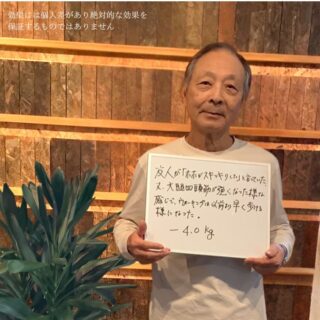 効果には個人差があり絶対的な効果を
保証するものではありません
友人が「ホホがスキッリした」と言っていた
又、大腿四頭筋が強くなった様な
感じで、ウォーキングは以前より早く歩ける
様になった。
－4.0 kg